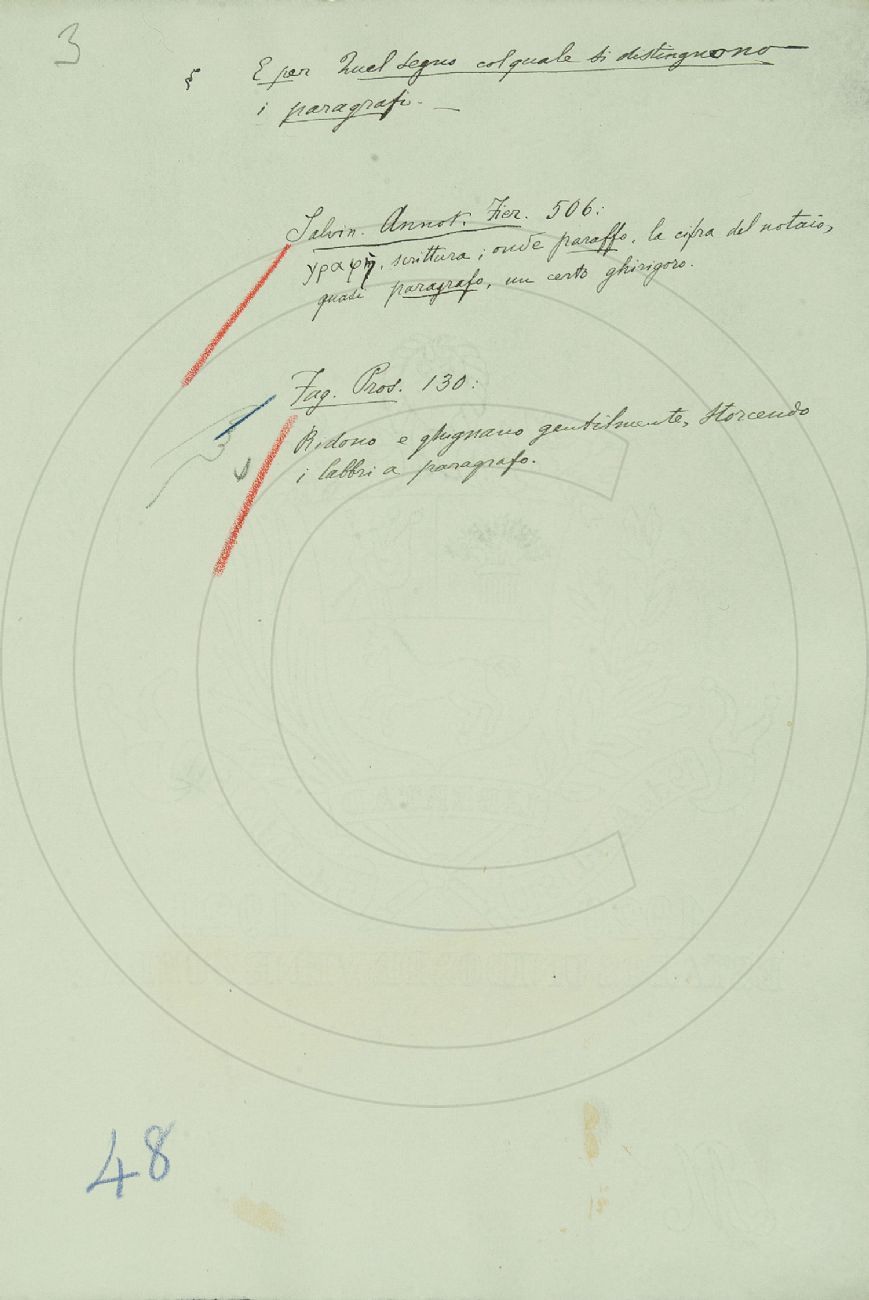 3
§ E per Quel segno col quale si distinguono
i paragrafi. —
Salvin. Annot. Fier. 506:
γραφή, scrittura; onde paraffo, la cifra del notaio,
quasi paragrafo, un certo ghirigoro.
Fag. Pros. 130:
3
Ridono e ghignano gentilmente, storcendo
i labbri a paragrafo.
48